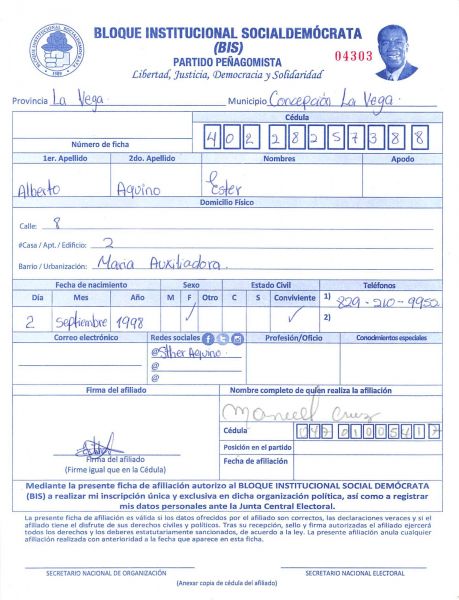 BLOQUE INSTITUCIONAL SOCIALDEMÓCRATA
BLOQUE INSTITUCIONAL SOCIALDEMÓCRATA
(BIS)
PARTIDO PEÑAGOMISTA
04303
Libertad, Justicia, Democracia y Solidaridad
Provincia La Vega. Municipio Concepción La Vega.
Cédula
Número de ficha 402 2825738 8
1er. Apellido 2do. Apellido Nombres Apodo
Alberto Aquino Ester
Domicilio Físico
Calle: 8
#Casa / Apt. / Edificio: 2
Barrio / Urbanización: Maria Auxiliadora.
Fecha de nacimiento Sexo Estado Civil Teléfonos
Día Mes Año M F Otro C S Conviviente 1) 829-210-9952
2 Septiembre 1998 ✓ ✓ 2)
Correo electrónico Redes sociales Profesión/Oficio Conocimientos especiales
@Esther Aquino.
@
@
Firma del afiliado Nombre completo de quien realiza la afiliación
Manuel Cruz
Cédula 047 0100541 7
Posición en el partido
Firma del afiliado
Fecha de afiliación
(Firme igual que en la Cédula)
Mediante la presente ficha de afiliación autorizo al BLOQUE INSTITUCIONAL SOCIAL DEMÓCRATA
(BIS) a realizar mi inscripción única y exclusiva en dicha organización política, así como a registrar
mis datos personales ante la Junta Central Electoral.
La presente ficha de afiliación es válida si los datos ofrecidos por el afiliado son correctos, las declaraciones veraces y si el
afiliado tiene el disfrute de sus derechos civiles y políticos. Tras su recepción, sello y firma autorizadas el afiliado ejercerá
todos los derechos y los deberes estatutariamente sancionados, de acuerdo a la ley. La presente afiliación anula cualquier
afiliación realizada con anterioridad a la fecha que aparece en esta ficha.
SECRETARIO NACIONAL DE ORGANIZACIÓN SECRETARIO NACIONAL ELECTORAL
(Anexar copia de cédula del afiliado)